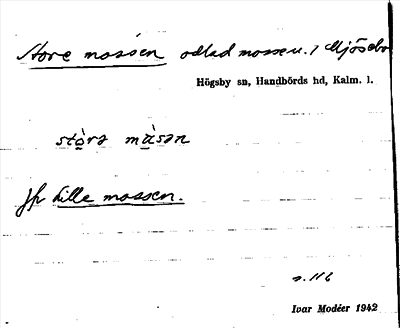 Store mossen odlad mosse u. / Mjösebo
Högsby sn, Handbörds hd, Kalm. l.
stòra màsan
Jfr Lille mossen.
s. 116
Ivar Modéer 1942